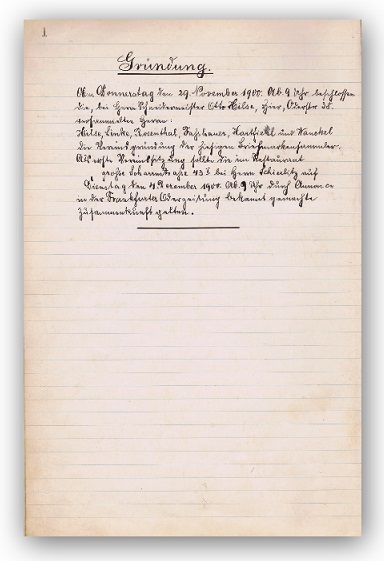 1
Gründung.
Am Donnerstag den 29. November 1900. Ab. 9 Uhr beschlossen
die, bei Herrn Schneidermeister Otto Heise, hier, Oderstr. 38.
versammelten Herren:
Heise, Linke, Rosenthal, Fehlauer, und
die Vereinsgründung der hiesigen Briefmarkensammler.
Als erste Vereinssitzung sollte die im Restaurant
große Scharrnstraße 43 b bei Herrn auf
Dienstag den 4. Dezember 1900. Ab. 9 Uhr durch Annonce
in der Frankfurter Oderzeitung bekannt gemachte
Zusammenkunft gelten.